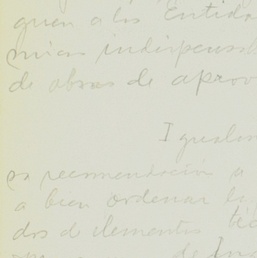 guen a las Entida
mias indispensab
de obras de aprov
Igualm
sa recomendación a
a bien ordenar la
dos elementos téc
de